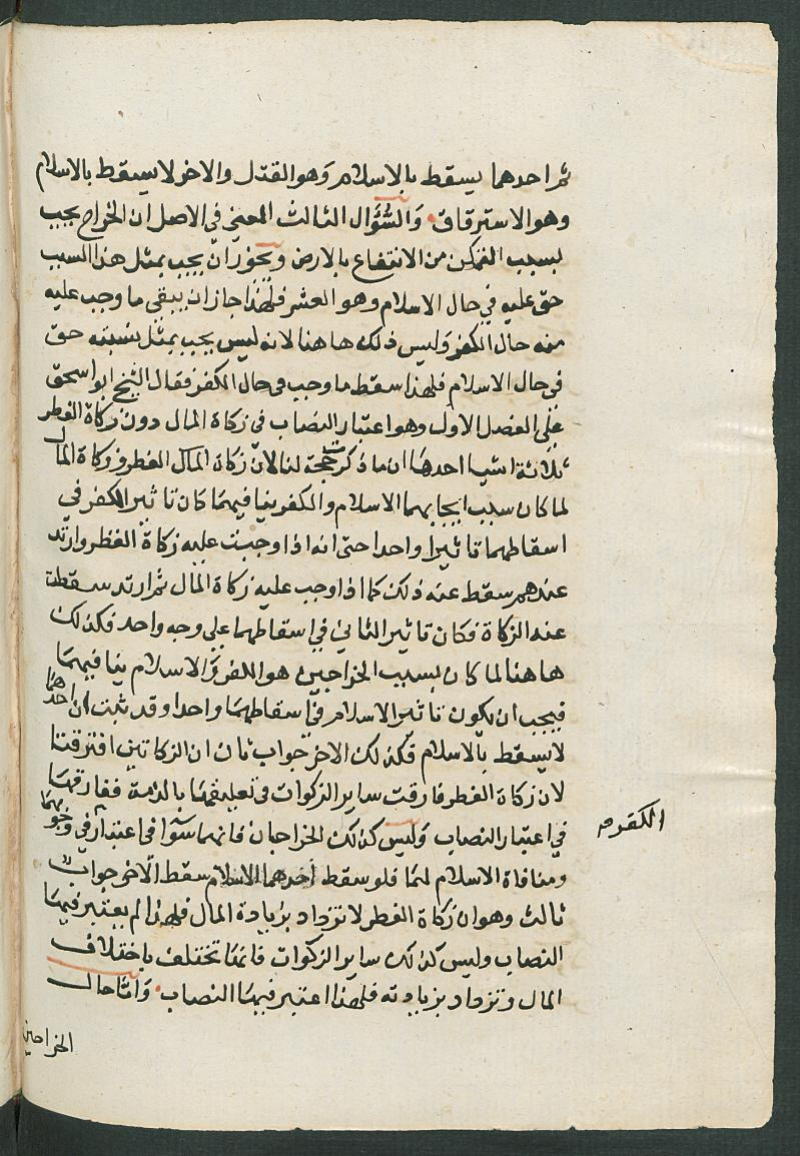 ثم احدهما يسقط بالاسلام وهو القتل والاخر لا يسقط بالاسلام
وهو الاسترقاق. والسُّؤال الثالث المعنى في الاصل ان الخراج يجب
بسبب التمكن من الانتفاع بالارض ويجوز ان يجب بمثل هذا السبب
حق عليه في حال الاسلام وهو العشر فلهذا جاز ان يبقى ما وجب عليه
منه حال الكفر وليس ذلك هاهنا لانه ليس يجب بمثل نسبته حق
في حال الاسلام فلهذا سقط ما وجب في حال الكفر فقال الشيخ ابو اسحق
على الفصل الاول وهو اعتبار النصاب في زكاة المال دون زكاة الفطر
ثلاثة اشيا احدها ان ما ذكرت حجة لنا لان زكاة المال الفطر وزكاة المال
لما كان سبب ايجابهما الاسلام والكفر ينافيهما كان تاثير الكفر في
اسقاطهما تاثيرا واحدا حتى انه اذا وجبت عليه زكاة الفطر وارتد
عندهم سقط عنه ذلك كما اذا وجب عليه زكاة المال ثم ارتد سقطت
عنه الزكاة فكان تاثير الثاني في اسقاطهما على وجه واحد فكذلك
هاهنا لما كان بسبب الخراجين هو الكفر والاسلام ينافيهما
فيجب ان يكون تاثير الاسلام في اسقاطهما واحدا وقد ثبت ان احدهما
لا يسقط بالاسلام فكذلك الاخر جواب ثان ان الزكاتين افترقتا
لان زكاة الفطر فارقت ساير الزكوات في تعليقها بالذمة ففارقتها
في اعتبار النصاب وليس كذلك الخراجان فانهما سوا في اعتبار في وجوبهما
الكفر
ومنافاة الاسلام لهما فلو سقط احدهما الاسلام سقط الآخر جواب
ثالث وهو ان زكاة الفطر لا تزداد بزيادة المال فلهذا لم يعتبر فيها
النصاب وليس كذلك ساير الزكوات فانها تختلف باختلاف
المال وتزداد بزيادته فلهذا اعتبر فيها النصاب. وامّا حال
الخراجين